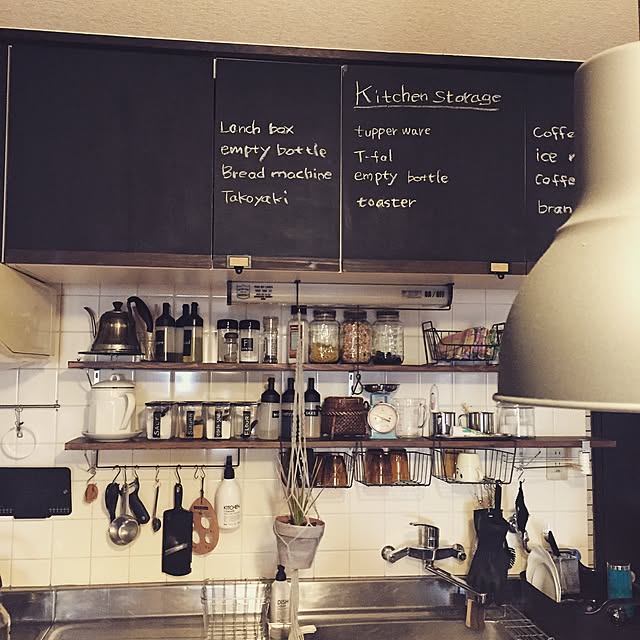 Kitchen Storage
Lonch box
empty bottle
Bread machine
Takoyaki
tupper ware
T-fal
empty bottle
toaster
Coffe
ice
coffe
bran
ON / OFF
KITCHEN